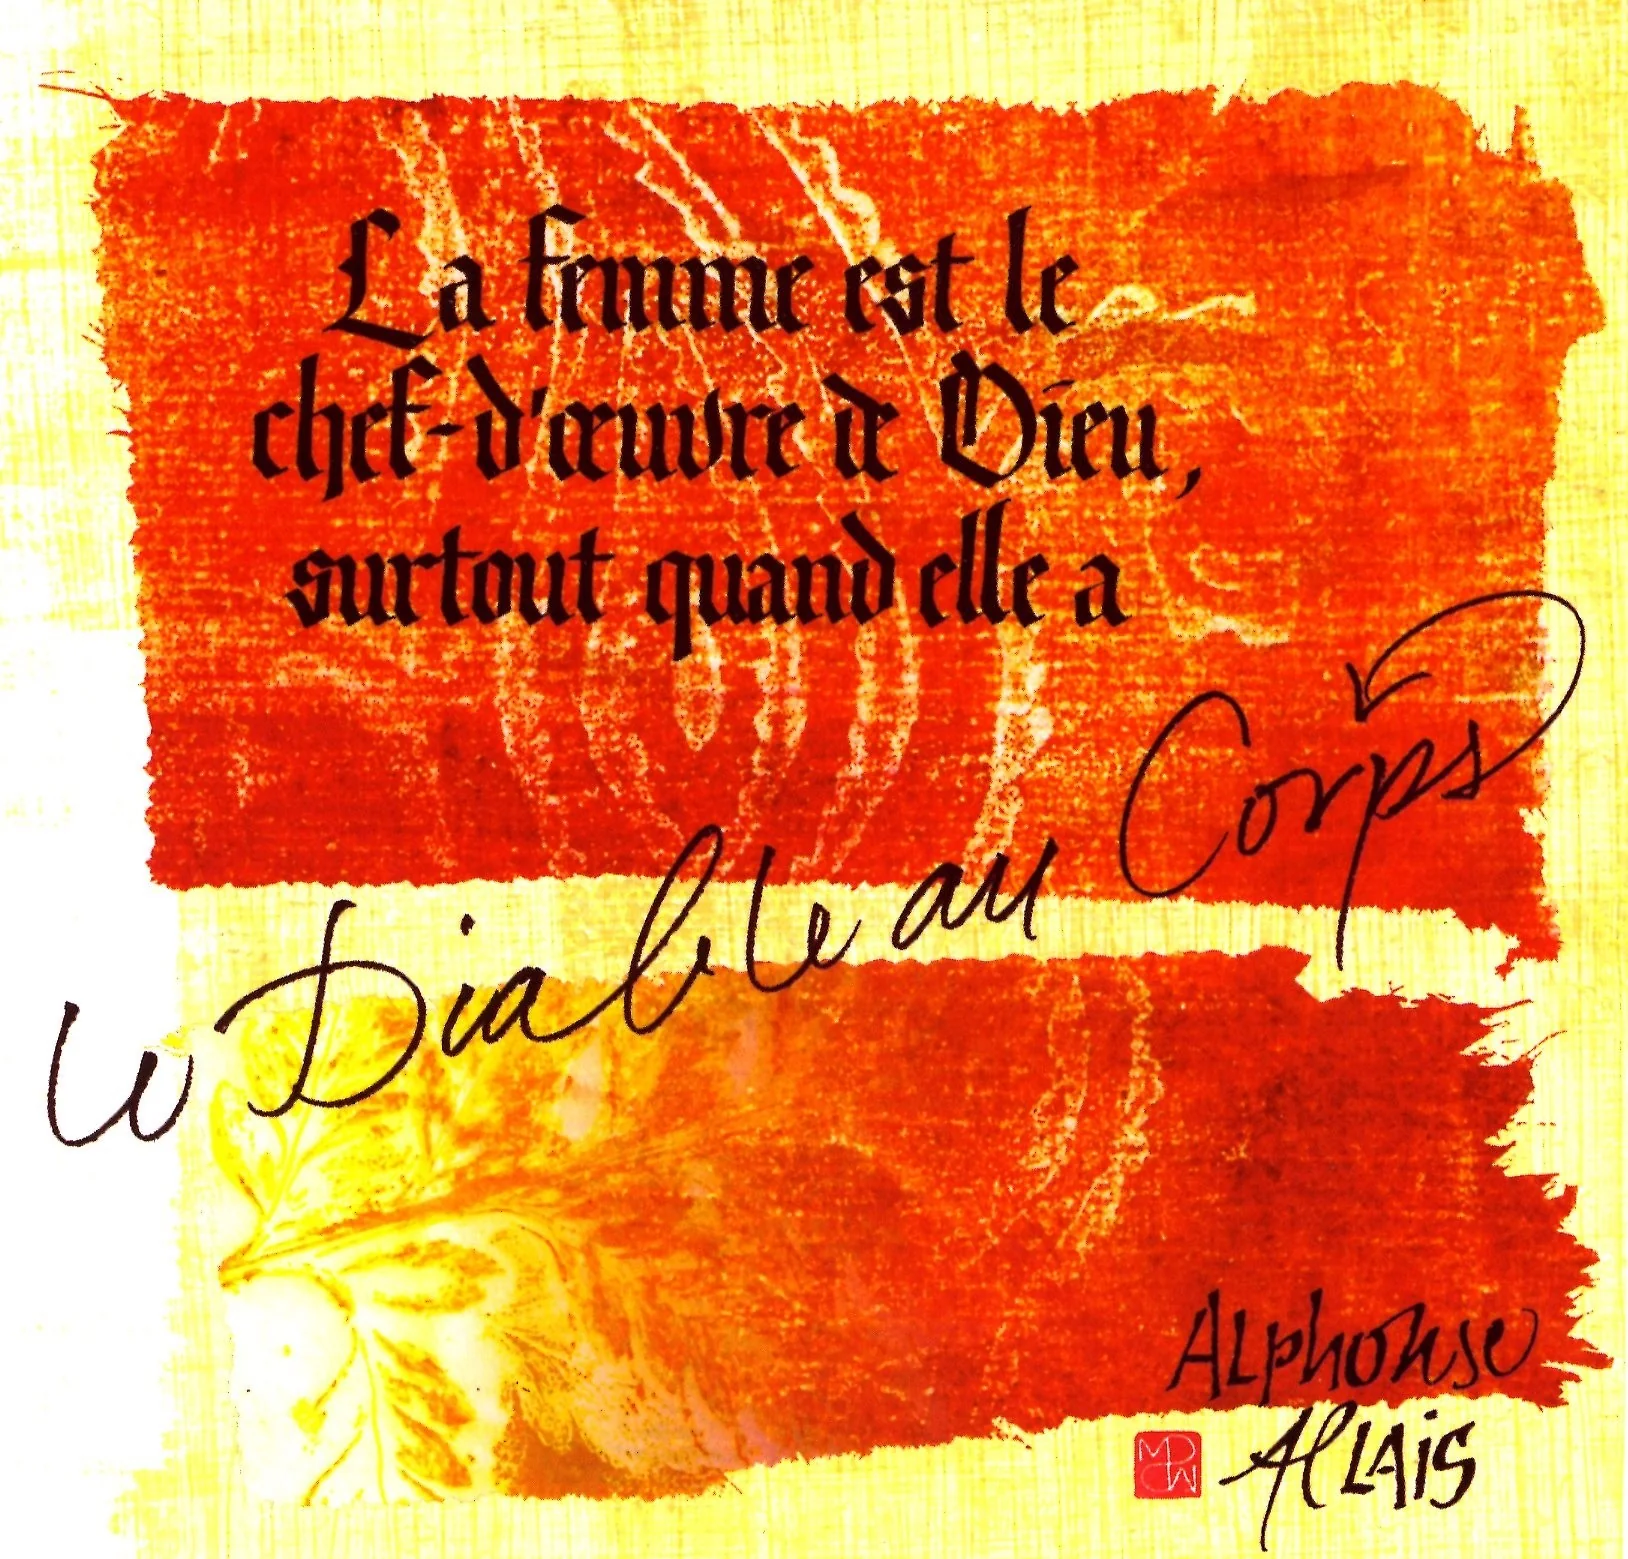 La femme est le
chef-d'œuvre de Dieu,
surtout quand elle a
le Diable au Corps
Alphonse
Allais
MD
CW